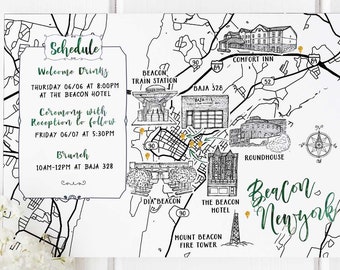 Schedule
Welcome Drinks
THURSDAY 06/06 AT 8:00PM
AT THE BEACON HOTEL
Ceremony with
Reception to follow
FRIDAY 06/07 AT 5:30PM
Brunch
10AM-12PM AT BAJA 328
COMFORT INN
BEACON
TRAIN STATION
BAJA 328
ROUNDHOUSE
DIA BEACON
THE BEACON
HOTEL
MOUNT BEACON
FIRE TOWER
Beacon
New York
90
90